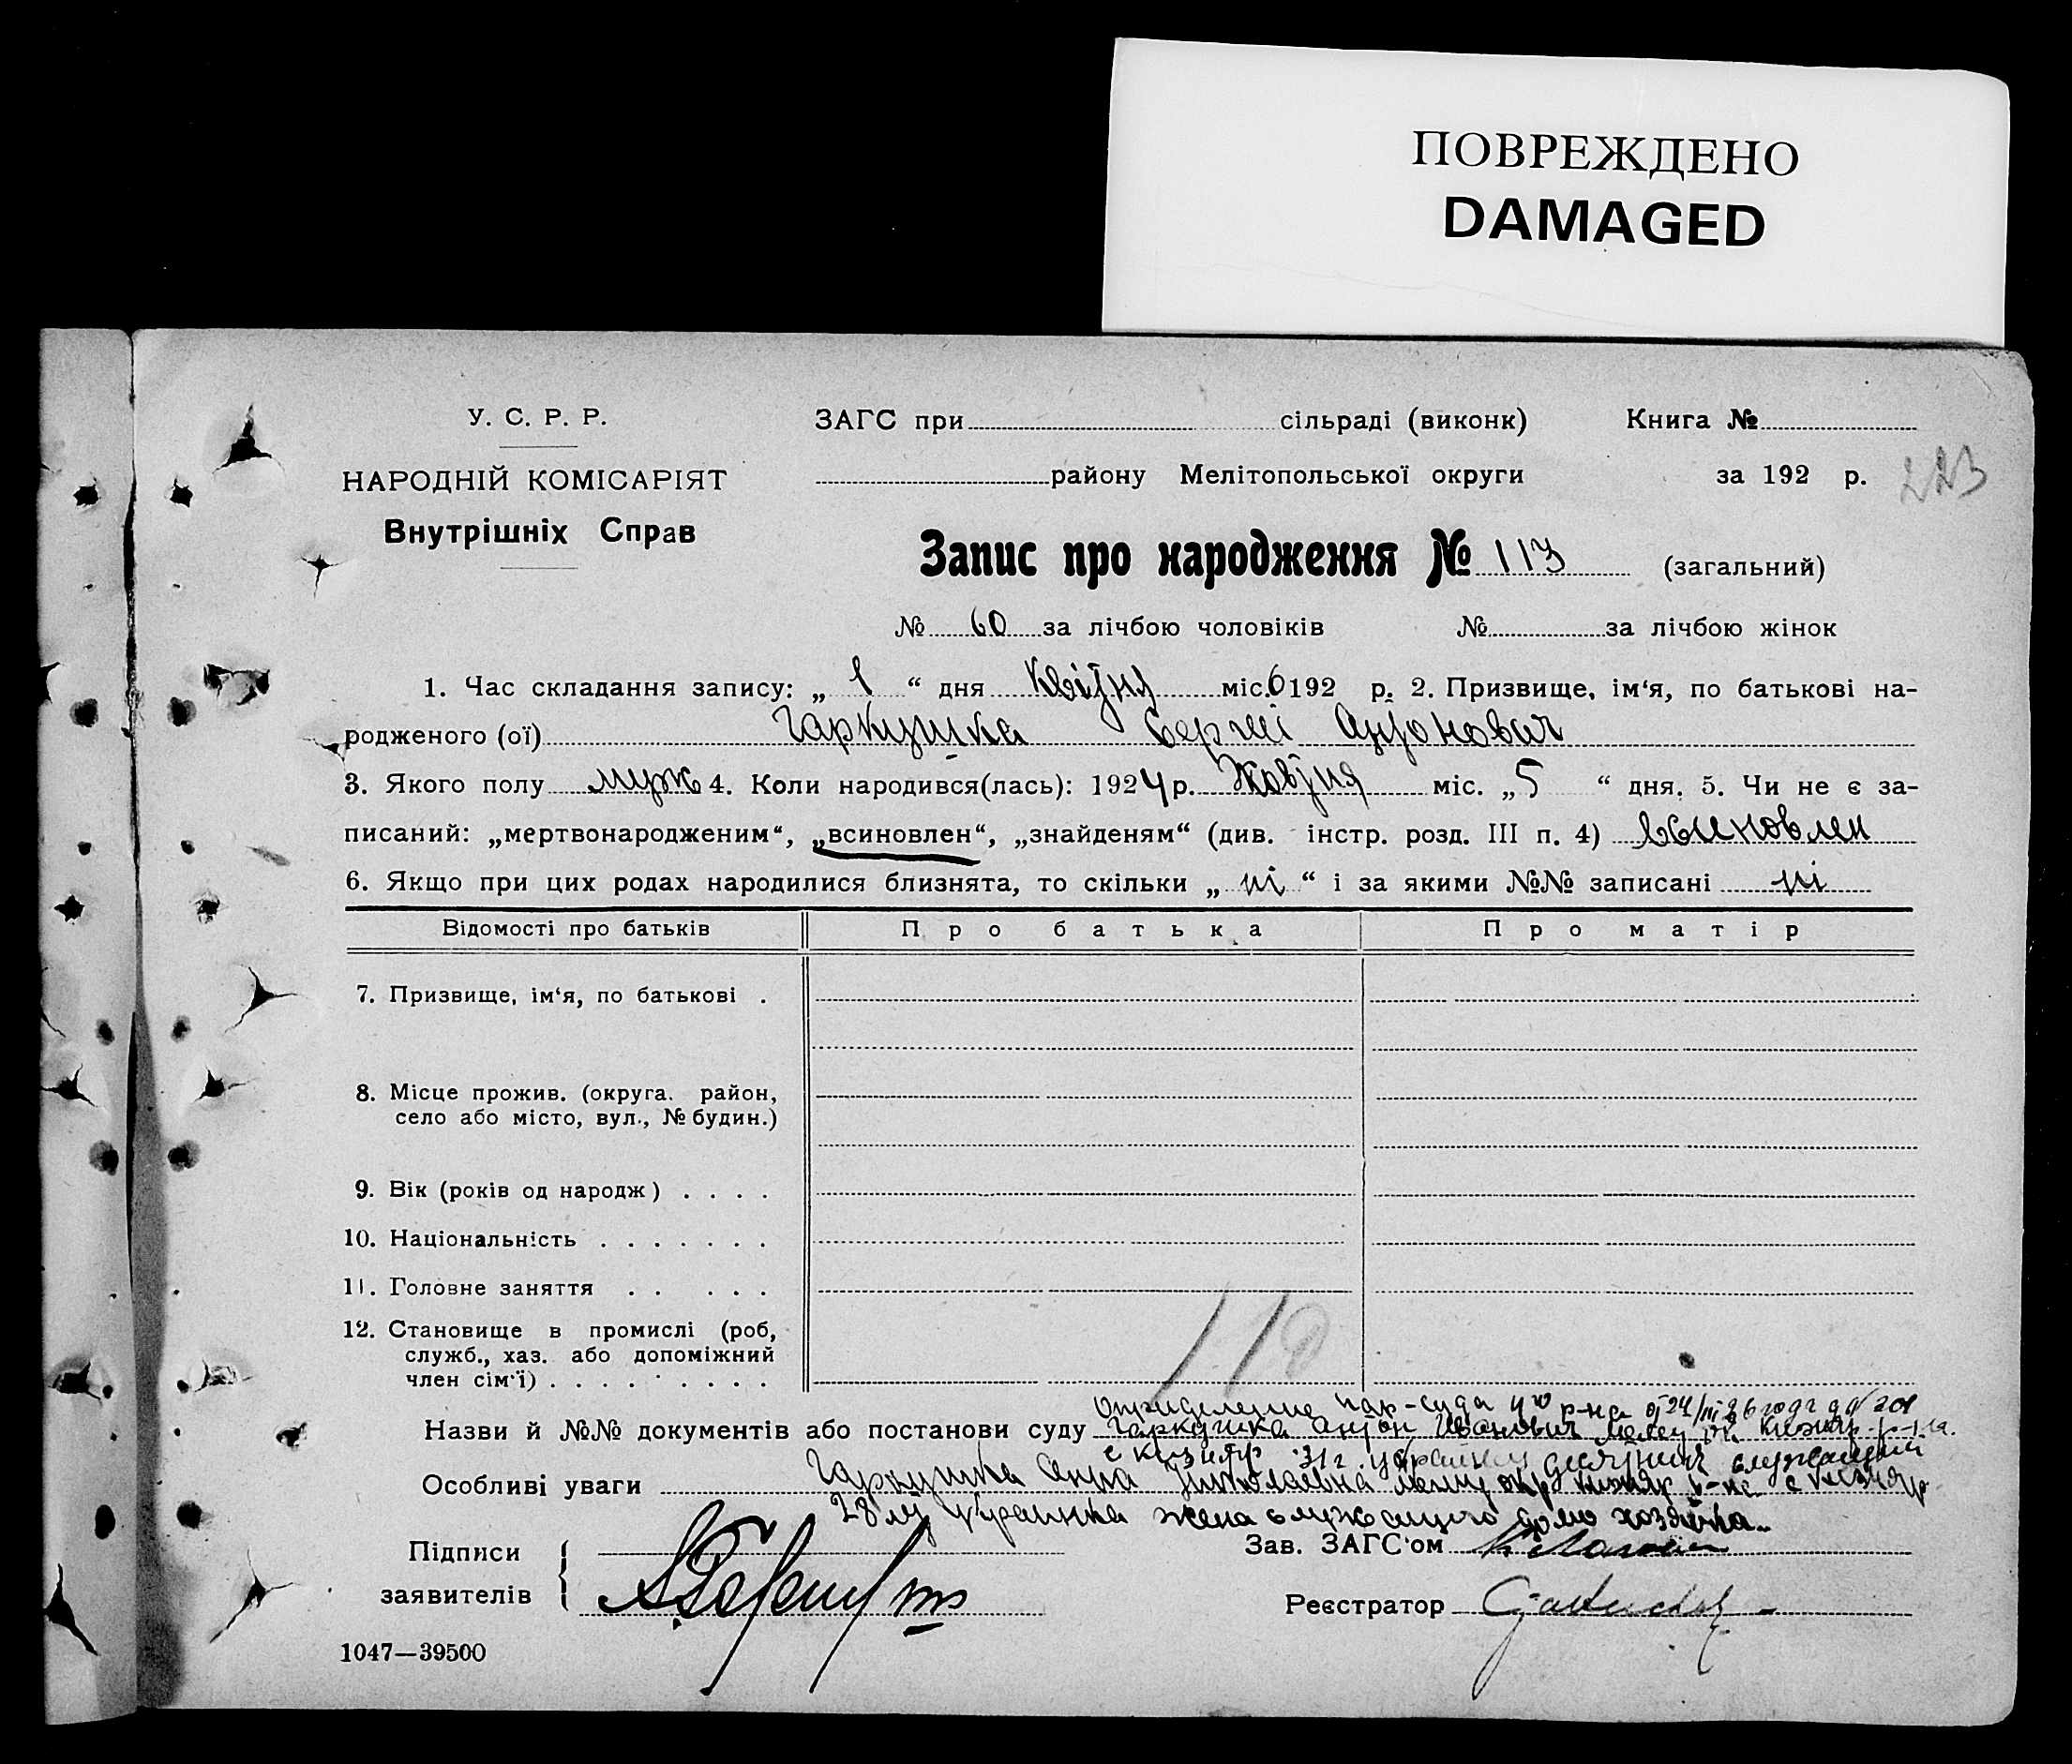 ПОВРЕЖДЕНО
DAMAGED
У. С. Р. Р.
ЗАГС при сільраді (виконк) Книга №
НАРОДНІЙ КОМІСАРІЯТ
району Мелітопольської округи за 192 р. 223
Внутрішніх Справ
Запис про народження № 113 (загальний)
№ 60 за лічбою чоловіків № за лічбою жінок
1. Час складання запису: „ 1 “ дня Квітня міс. 6 192 р. 2. Призвище, ім‘я, по батькові на-
родженого (ої) Гаркушка Сергій Антонович
3. Якого полу муж 4. Коли народився(лась): 1924 р. Жовтня міс. „ 5 “ дня. 5. Чи не є за-
писаний: „мертвонародженим“, „всиновлен“, „знайденям“ (див. інстр. розд. III п. 4) всиновлен
6. Якщо при цих родах народилися близнята, то скільки „ ні “ і за якими №№ записані ні
Відомості про батьків Про батька Про матір
7. Призвище, ім‘я, по батькові .
8. Місце прожив. (округа. район,
село або місто, вул., № будин.)
9. Вік (років од народж) . . . .
10. Національність . . . . . . .
11. Головне заняття . . . . .
12. Становище в промислі (роб,
служб., хаз. або допоміжний
член сім‘ї) . . . . . . . . .
Определение нар-суда 4го р-на от 24/III 26 года
Назви й №№ документів або постанови суду Гаркушка Антон Иванович р-на.
31 г. служащий
Особливі уваги Гаркушка Анна Николаевна
28 лет Украинка жена служащего дом хозяйка.
Підписи
Зав. ЗАГС‘ом
заявителів
Реєстратор
1047—39500